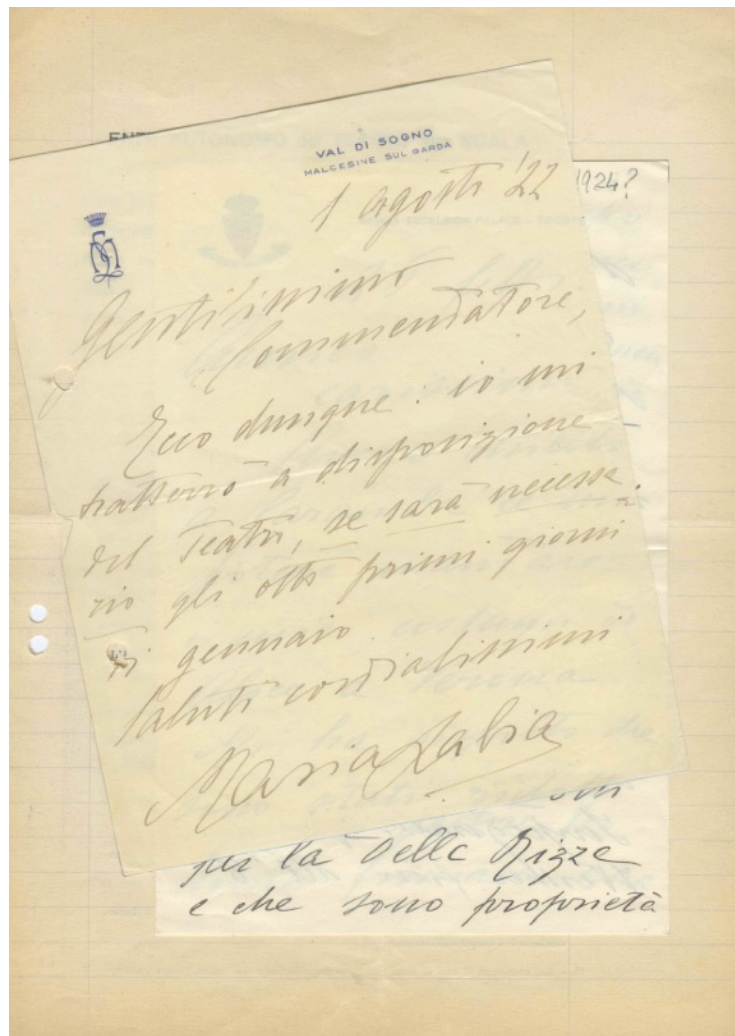 VAL DI SOGNO
MALCESINE SUL GARDA
1924?
1 agosto '22
Gentilissimo
Commendatore,
Ecco dunque: io mi
tratterrò a disposizione
del Teatro, se sarà necessa-
rio gli otto primi giorni
di gennaio.
Saluti cordialissimi
Maria Labia
per la Delle Rizze
e che sono proprietà